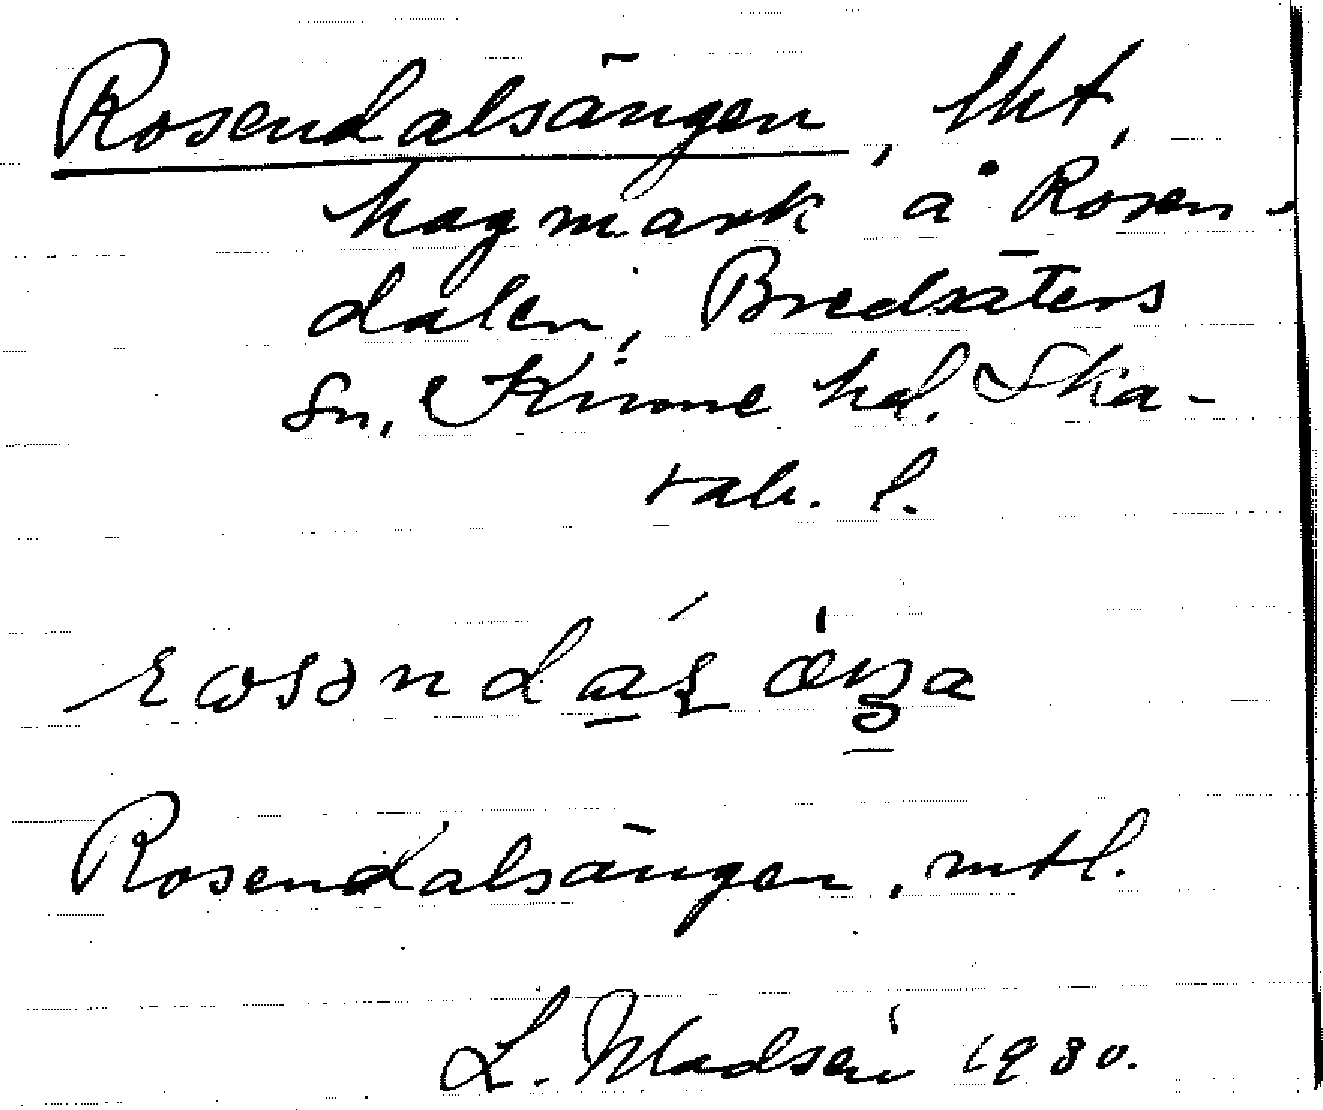 Rosendalsängen, tkt,
hagmark å Rosen-
dalen, Bredsäters
sn, Kinne hd. Ska-
rab. l.
Rosendalsängen, mtl.
L. Madsén 1930.